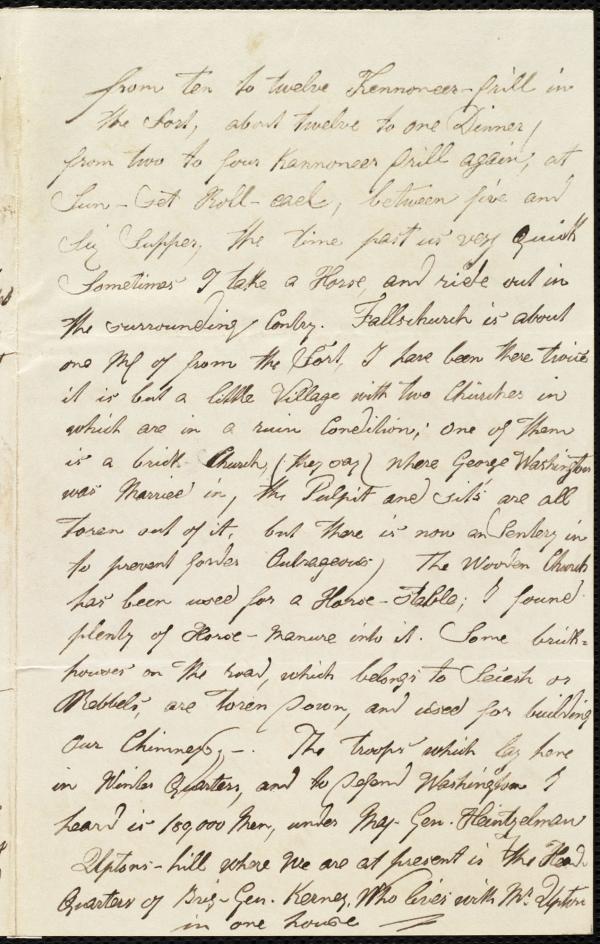 from ten to twelve Kennoneer-Drill in
the Fort, about twelve to one Dinner,
from two to four Kannoneer Drill again, at
Sun-Set Roll-call, between five and
Six Supper, the time past us very Quick
Sometimes I take a Horse, and ride out in
the surrounding Contry. Fallschurch is about
one Ml of from the Fort, I have been there twice
it is but a little Village with two Churches in
which are in a ruin Condition; one of them
is a brick Church, (they say) where George Washington
was Married in, the Pulpit and sits are all
toren out of it, but there is now an Sentery in
to prevent forder Outrageous, The Wooden Church
has been used for a Horse-Stable; I found
plenty of Horse-manure into it. Some brick-
houses on the road, which belongs to Secesh or
Rebbels, are toren down, and used for building
our Chimneys,-. The troops which lay here
in Winter Quarters, and to defend Washington I
heard is 189,000 Men, under Maj-Gen. Heintzelman
Uptons-hill where we are at present is the Head
Quarters of Brig-Gen. Kerney, Who lives with Mr. Upton
in one house